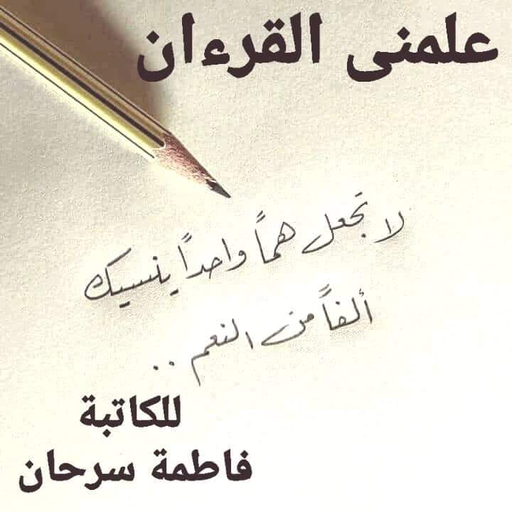 علمنى القرءان
لا تجعل هماً واحداً ينسيك
ألفاً من النعم ..
للكاتبة
فاطمة سرحان